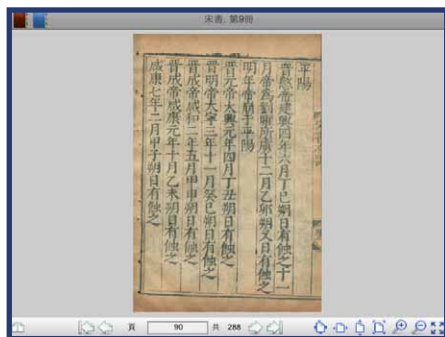 宋書, 第9冊
平陽
晉愍帝建興四年六月丁巳朔日有蝕之十一
月帝為劉曜所虜十二月乙卯朔又日有蝕之
明年帝崩于平陽
晉元帝太興元年四月丁丑朔日有蝕之
晉明帝太寧三年十一月癸巳朔日有蝕之
晉成帝咸和二年五月甲申朔日有蝕之
晉成帝咸康元年十月乙未朔日有蝕之
咸康七年二月甲子朔日有蝕之
頁 90 共 288